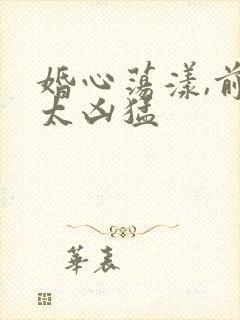 婚心荡漾,前
太凶猛
華表